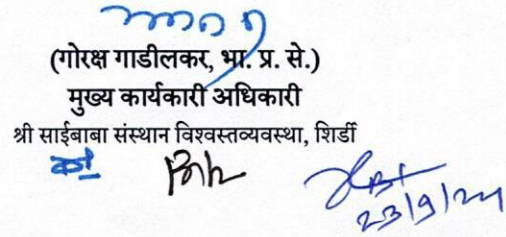 (गोरक्ष गाडीलकर, भा. प्र. से.)
मुख्य कार्यकारी अधिकारी
श्री साईबाबा संस्थान विश्वस्तव्यवस्था, शिर्डी
23/9/24